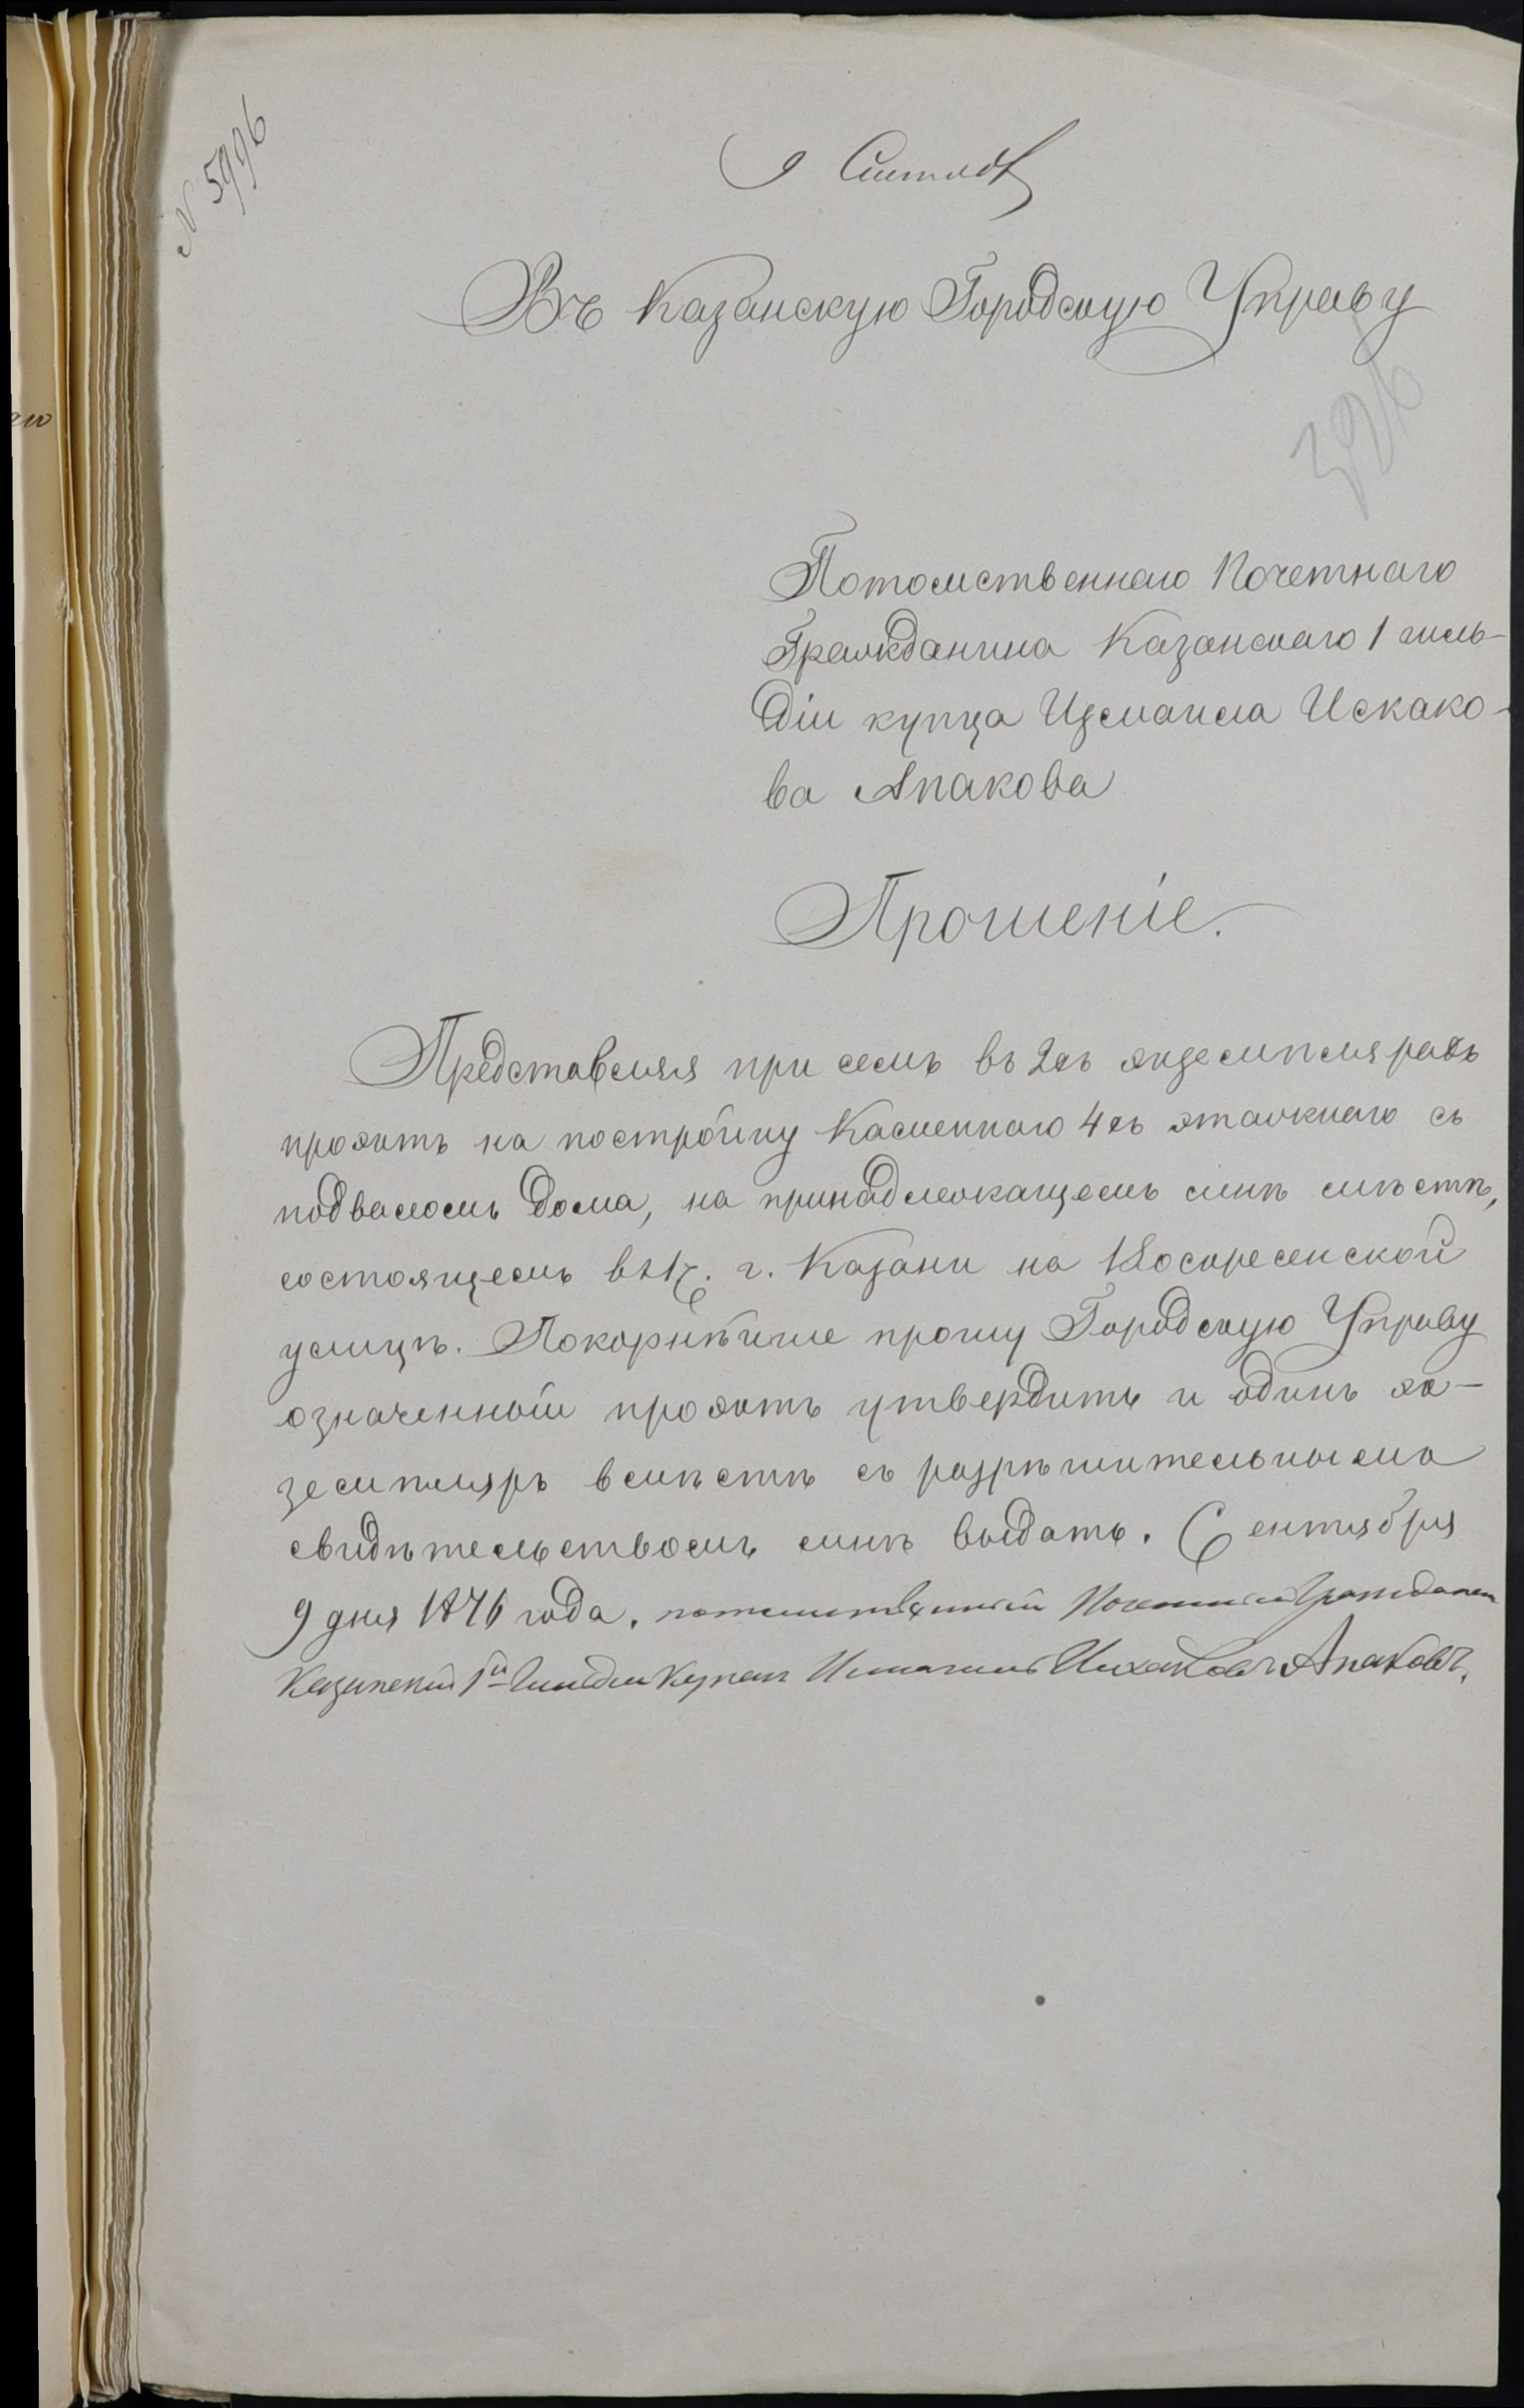 N 5996
9 Сентяб
Въ Казанскую Городскую Управу
396
Потомственнаго Почетнаго
Гражданина Казанскаго 1 гиль-
діи купца Измаила Искако-
ва Апакова
Прошеніе.
Представляя при семъ въ 2хъ экземплярахъ
проэктъ на постройку Каменнаго 4хъ этажнаго съ
подваломъ дома, на принадлежащемъ мнѣ мѣстѣ,
состоящемъ въ 1ч. г. Казани на Воскресенской
улицѣ. Покорнѣйше прошу Городскую Управу
означенный проэктъ утвердить и одинъ эк-
земпляръ вмѣстѣ съ разрѣшительнымъ
свидѣтельствомъ мнѣ выдать. Сентября
9 дня 1876 года. потомственный Почетный Гражданин
Казанский 1й Гильдии Купецъ Исмагилъ Исхаковъ Апаковъ.